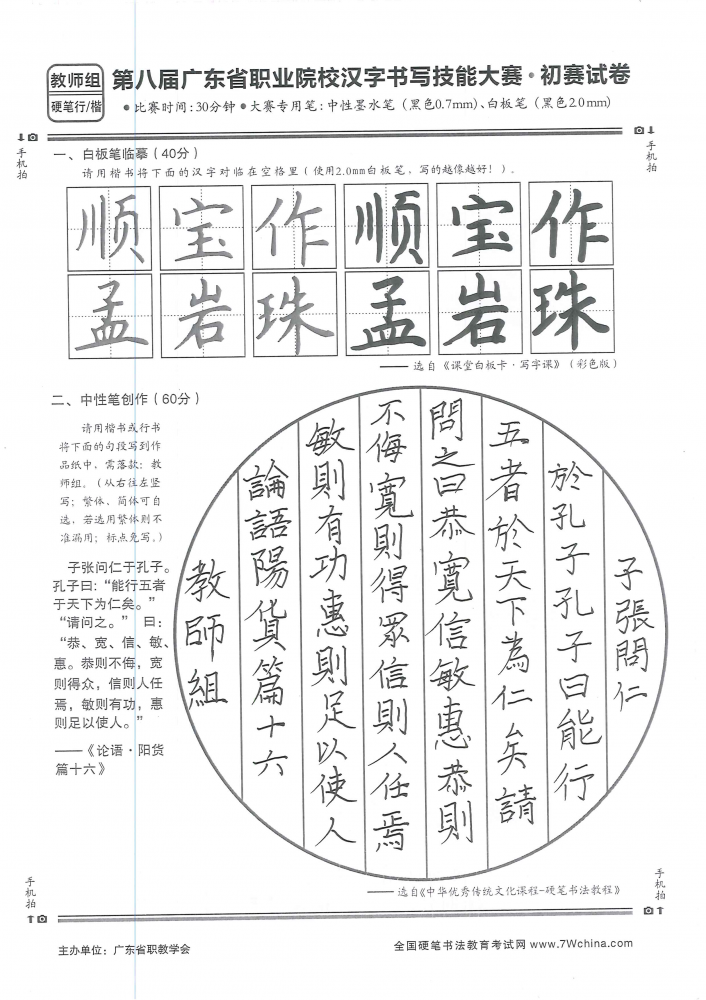 教师组
硬笔行/楷
第八届广东省职业院校汉字书写技能大赛·初赛试卷
●比赛时间:30分钟●大赛专用笔:中性墨水笔(黑色0.7mm)、白板笔(黑色2.0mm)
手机拍
手机拍
一、白板笔临摹(40分)
请用楷书将下面的汉字对临在空格里(使用2.0mm白板笔，写的越像越好!)。
顺宝作顺宝作
孟岩珠孟岩珠
——选自《课堂白板卡·写字课》(彩色版)
二、中性笔创作(60分)
请用楷书或行书
将下面的句段写到作
品纸中，需落款：教
师组。(从右往左竖
写；繁体、简体可自
选，若选用繁体则不
准漏用；标点免写。)
子张问仁于孔子。
孔子曰:“能行五者
于天下为仁矣。”
“请问之。”曰:
“恭、宽、信、敏、
惠。恭则不侮，宽
则得众，信则人任
焉，敏则有功，惠
则足以使人。”
——《论语·阳货
篇十六》
子張問仁
於孔子孔子曰能行
五者於天下為仁矣請
問之曰恭寬信敏惠恭則
不侮寬則得眾信則人任焉
敏則有功惠則足以使人
論語陽貨篇十六
教師組
——选自《中华优秀传统文化课程-硬笔书法教程》
手机拍
手机拍
主办单位：广东省职教学会
全国硬笔书法教育考试网 www.7Wchina.com